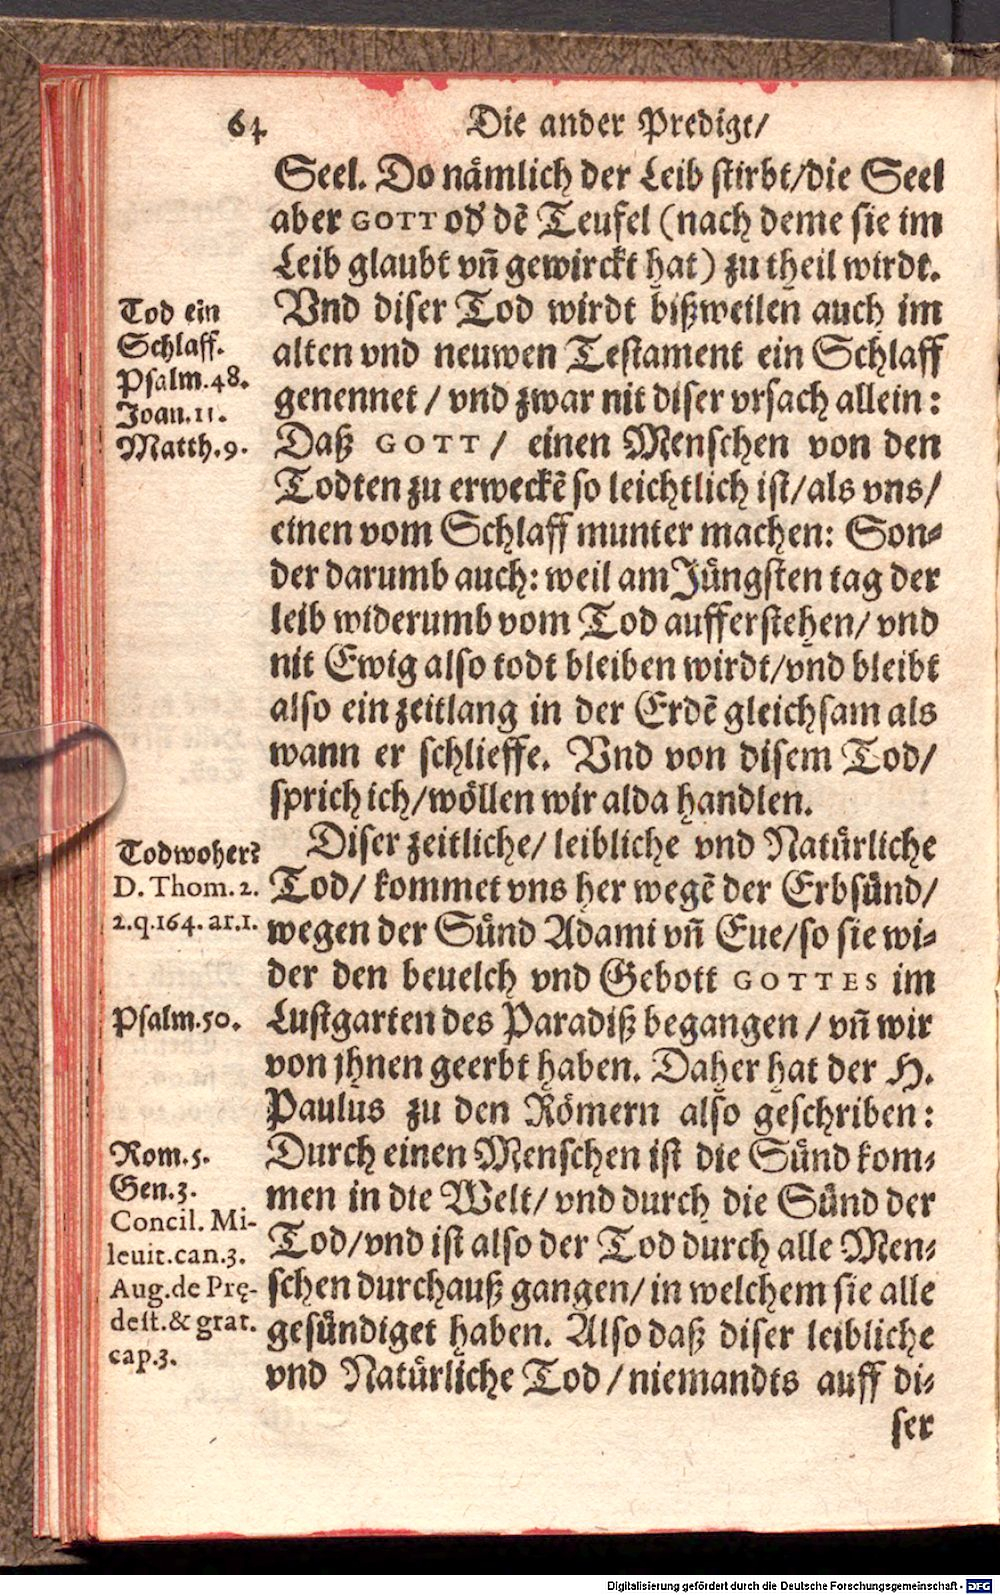 64 Die ander Predigt/
Seel. Do nämlich der Leib stirbt/die Seel
aber GOTT od' dẽ Teufel (nach deme sie im
Leib glaubt vñ gewirckt hat) zu theil wirdt.
Vnd diser Tod wirdt bißweilen auch im
alten vnd neuwen Testament ein Schlaff
genennet / vnd zwar nit diser vrsach allein:
Daß GOTT / einen Menschen von den
Todten zu erweckẽ so leichtlich ist/als vns/
einen vom Schlaff munter machen: Son-
der darumb auch: weil am Jüngsten tag der
leib widerumb vom Tod aufferstehen/ vnd
nit Ewig also todt bleiben wirdt/vnd bleibt
also ein zeitlang in der Erdẽ gleichsam als
wann er schlieffe. Vnd von disem Tod/
sprich ich/wöllen wir alda handlen.
Diser zeitliche/ leibliche vnd Natürliche
Tod/ kommet vns her wegẽ der Erbsünd/
wegen der Sünd Adami vñ Eue/so sie wi-
der den beuelch vnd Gebott GOTTES im
Lustgarten des Paradiß begangen / vñ wir
von jhnen geerbt haben. Daher hat der H.
Paulus zu den Römern also geschriben:
Durch einen Menschen ist die Sünd kom-
men in die Welt/ vnd durch die Sünd der
Tod/vnd ist also der Tod durch alle Men-
schen durchauß gangen/ in welchem sie alle
gesündiget haben. Also daß diser leibliche
vnd Natürliche Tod / niemandts auff di-
ser
Tod ein
Schlaff.
Psalm.48.
Joan.11.
Matth.9.
Tod woher?
D. Thom. 2.
2.q.164. ar.1.
Psalm.50.
Rom.5.
Gen.3.
Concil. Mi-
leuit.can.3.
Aug.de Prę-
dest.& grat.
cap.3.
Digitalisierung gefördert durch die Deutsche Forschungsgemeinschaft - DFG